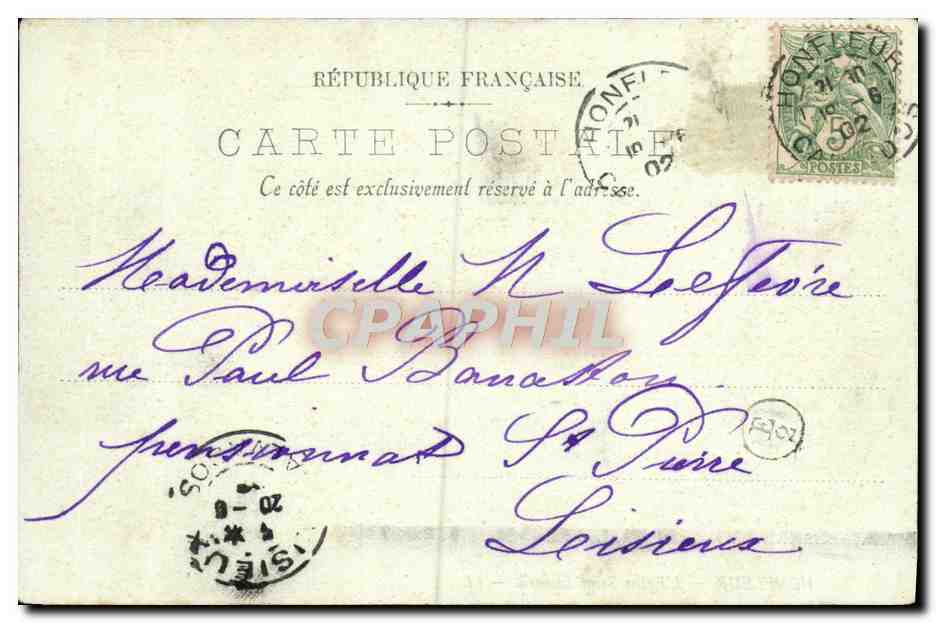 RÉPUBLIQUE FRANÇAISE
CARTE POSTALE
Ce côté est exclusivement réservé à l'adresse.
HONFLEUR
02
HONFL
02
5
POSTES
Mademoiselle N Leefevre
CPAPHIL
rue Paul Banaston
pensionnat St Pierre
Lisieux